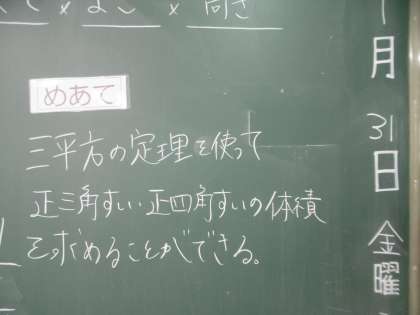 たて × よこ × 高さ
めあて
三平方の定理を使って
正三角すい・正四角すいの体積
を求めることができる。
月
31
日
金
曜